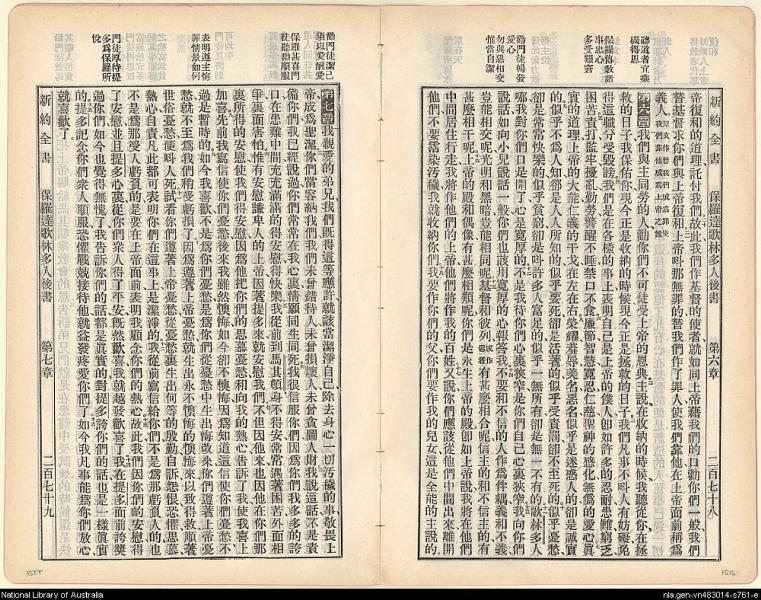 新約全書 保羅達歌林多人後書 第六章 二百七十八
保羅傳教諸事忠心
多受艱害
勸門徒暢發愛心
勿與惡相交
惟當自潔
帝復和的道理託付我們故此我們作基督的使者就如同上帝藉我們的口勸你們一般我們
替基督求你們與上帝復和上帝叫那無罪的替我們作了罪人使我們靠他在上帝面前稱爲
義人
第六章 我們與主同勞的人勸你們不可徒受上帝的恩典主說在收納的時候我聽從你在拯
救的日子我保佑你現今正是收納的時候現今正是拯救的日子我們凡事不叫人有妨礙免
得這職分受毀謗我們是在各樣的事上表明自己是上帝的僕人卽如許多的忍耐患難窮乏
困苦責打監牢擾亂勤勞警醒不睡禁口不食廉節智慧寬忍仁慈聖神的感化無僞的愛心眞
實的道理上帝的大能仁義的干戈在左在右榮耀羞辱美名惡名似乎是迷惑人的卻是誠實
的似乎不爲人知卻是人人所知的似乎要死卻是活著的似乎受責罰卻不至死的似乎憂愁
卻是常常快樂的似乎貧窮卻是叫許多人富足的似乎一無所有卻是無一不有的歌林多人
哪我對你們口是開了心是寬厚的不是我待你們心裏狹窄是你們自己心裏狹窄我向你們
說話如向小兒說話一般你們也該用寬厚的心報答我不要和不信的人作爲伴耦義和不義
豈能相交呢光明和黑暗豈能相同呢基督和彼列有甚麼相合呢信主的和不信主的有
甚麼相干呢上帝的殿和偶像有甚麼相類呢你們是永生上帝的殿卽如上帝說我將在他們
中間居住行走我將作他們的上帝他們將作我的百姓又說你們應該從他們中間出來離開
他們不要霑染汚穢我就收納你們我要作你們的父你們要作我的兒女這是全能的主說的
勸門徒潔己
須以愛酬愛
保羅甚喜門
徒聽勸順服
表明遵主悔
罪情景如何
門徒厚待提
多爲保羅所
悅
第七章 我親愛的弟兄我們旣得這等應許就該當潔淨自己除去身心一切汚穢的事敬畏上
帝成爲聖潔你們當容納我們我們未曾錯待人未曾損壞人未曾貪圖人財我說這話不是責
備你們我已經說過你們常常在我心裏情願同生同死我很信服你們因爲你們我多多的誇
口在患難中間充充滿滿的得安慰得快樂我從前到馬其頓身不得安常常遇著困苦外面相
爭裏面害怕惟有安慰謙卑人的上帝因著提多來就安慰我們不但因他來也因他在你們那
裏所得的安慰使我們得安慰因爲他把你們的思慕憂愁和向我的熱心告訴了我使我喜上
加喜先前我寫信使你們憂愁後來我雖然懊悔如今卻不懊悔因爲知道這信使你們憂愁不
過是暫時的如今我喜歡不是爲你們憂愁是爲你們從憂愁中生出悔改來你們遵著上帝憂
愁就不至爲我們稍受虧損了因爲遵著上帝憂愁就生出永不懊悔的悔改來以致得救順著
世俗憂愁便叫人死試看你們遵著上帝憂愁從憂愁生出何等的殷勤自訴愁恨恐懼思慕
熱心自責凡此都可表明你們在這事上是潔淨的我從前寫信給你們不是爲那虧負人的也
不是爲那受人虧負的是要在上帝面前表明我顧念你們的熱心故此我們因你們的安慰得
了安慰並且提多心裏從你們衆人得了平安旣然歡喜我就越發歡喜了我在提多面前誇獎
過你們如今也覺得無愧了我告訴你們的話都是眞實的對提多誇你們的話也是一樣眞實
的提多記念你們衆人順服恐懼戰兢接待他就益發疼愛你們了如今我凡事能爲你們放心
就喜歡了
新約全書 保羅達歌林多人後書 第七章 二百七十九
National Library of Australia
nla.gen-vn483014-s761-e